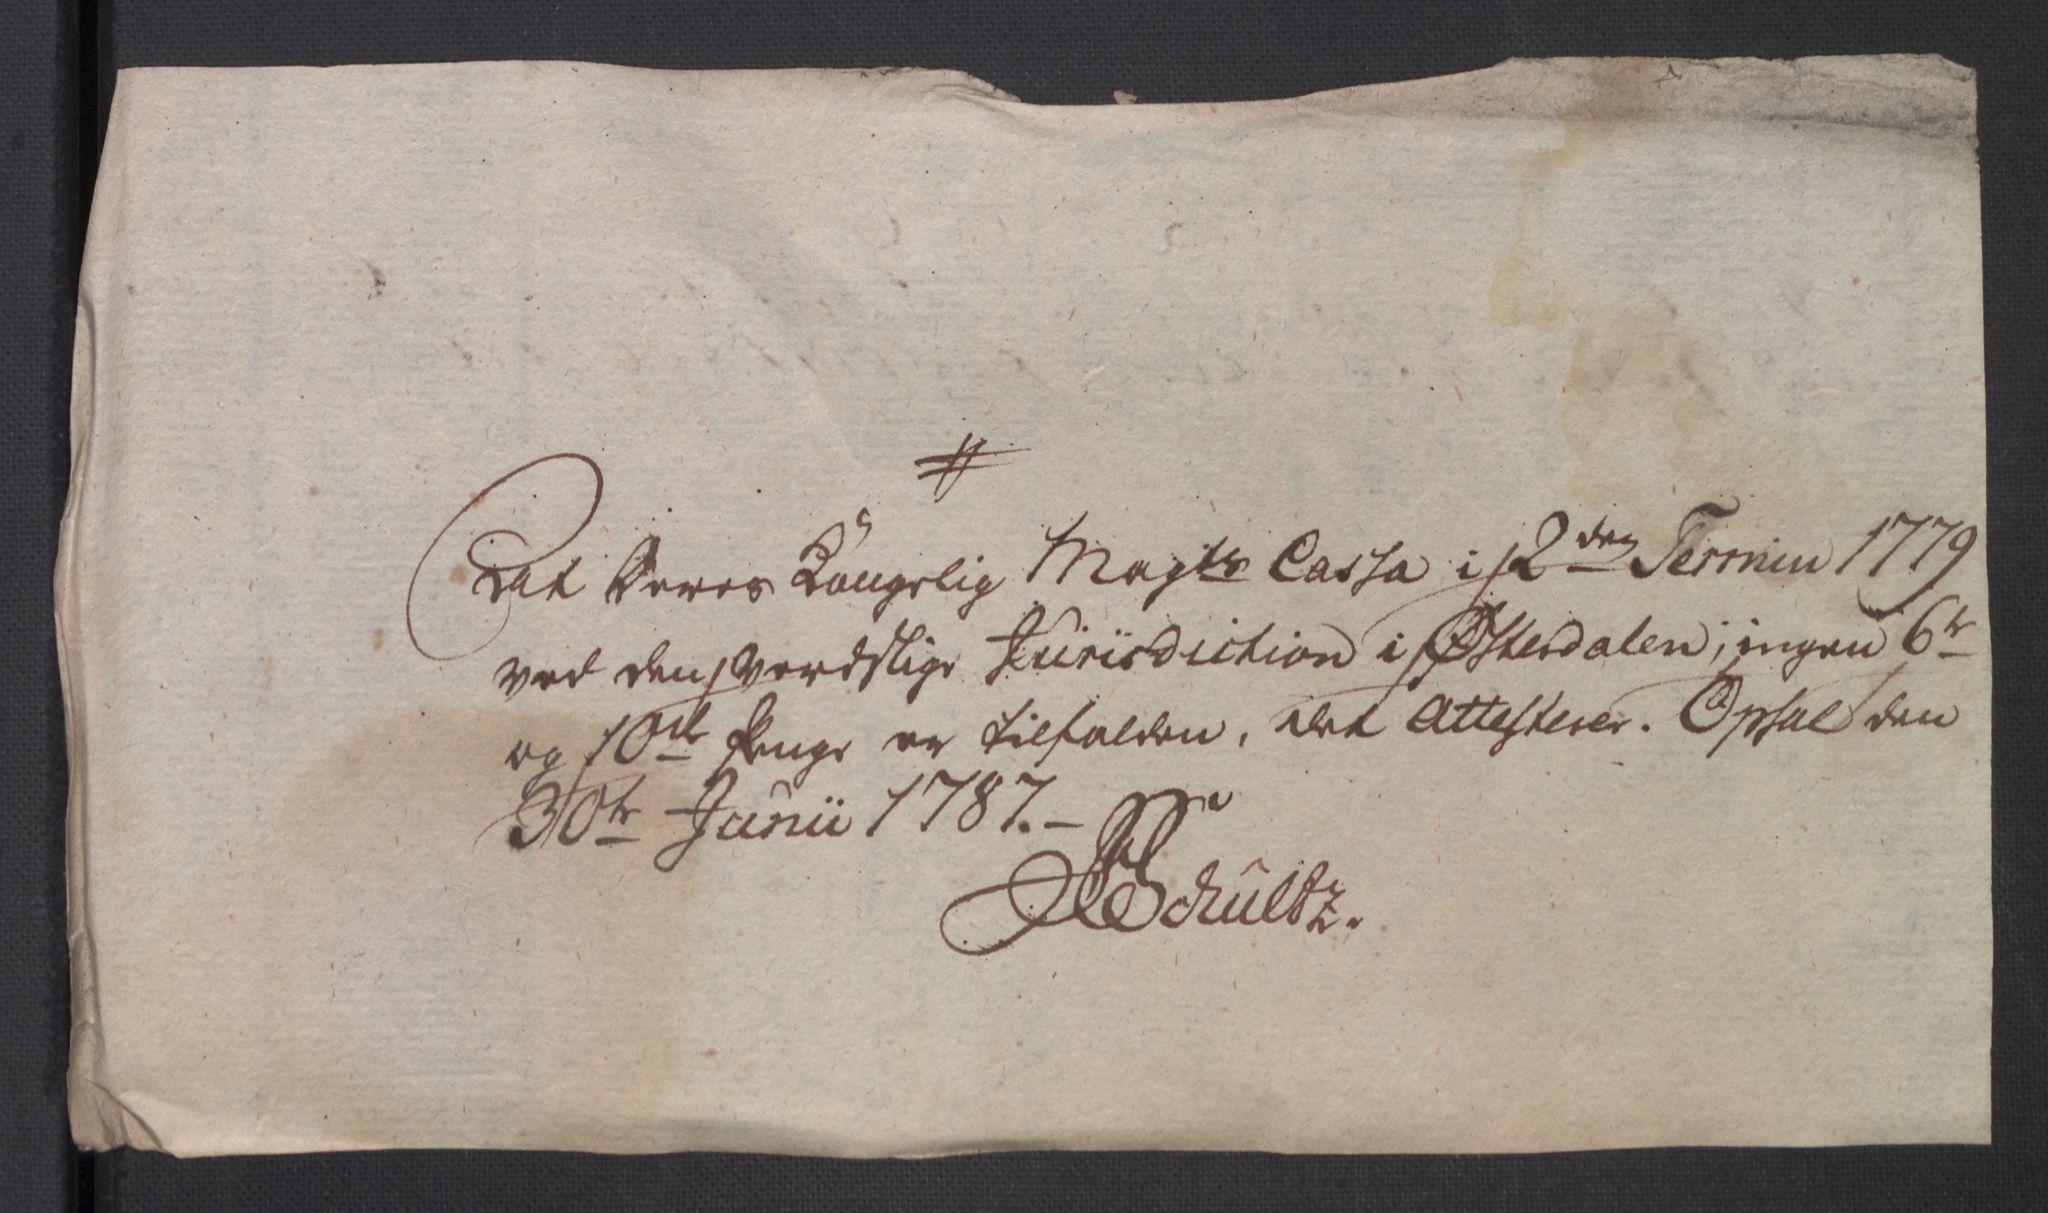 #
Dat Deres Kongelig Mayts Cassa i 2den Termin 1779
ved den verdslige Jurisdiction i Østerdalen, ingen 6te
og 10de Penge er tilfalden, det Attesterer. Opsal den
30te Junii 1787.-
Schultz.